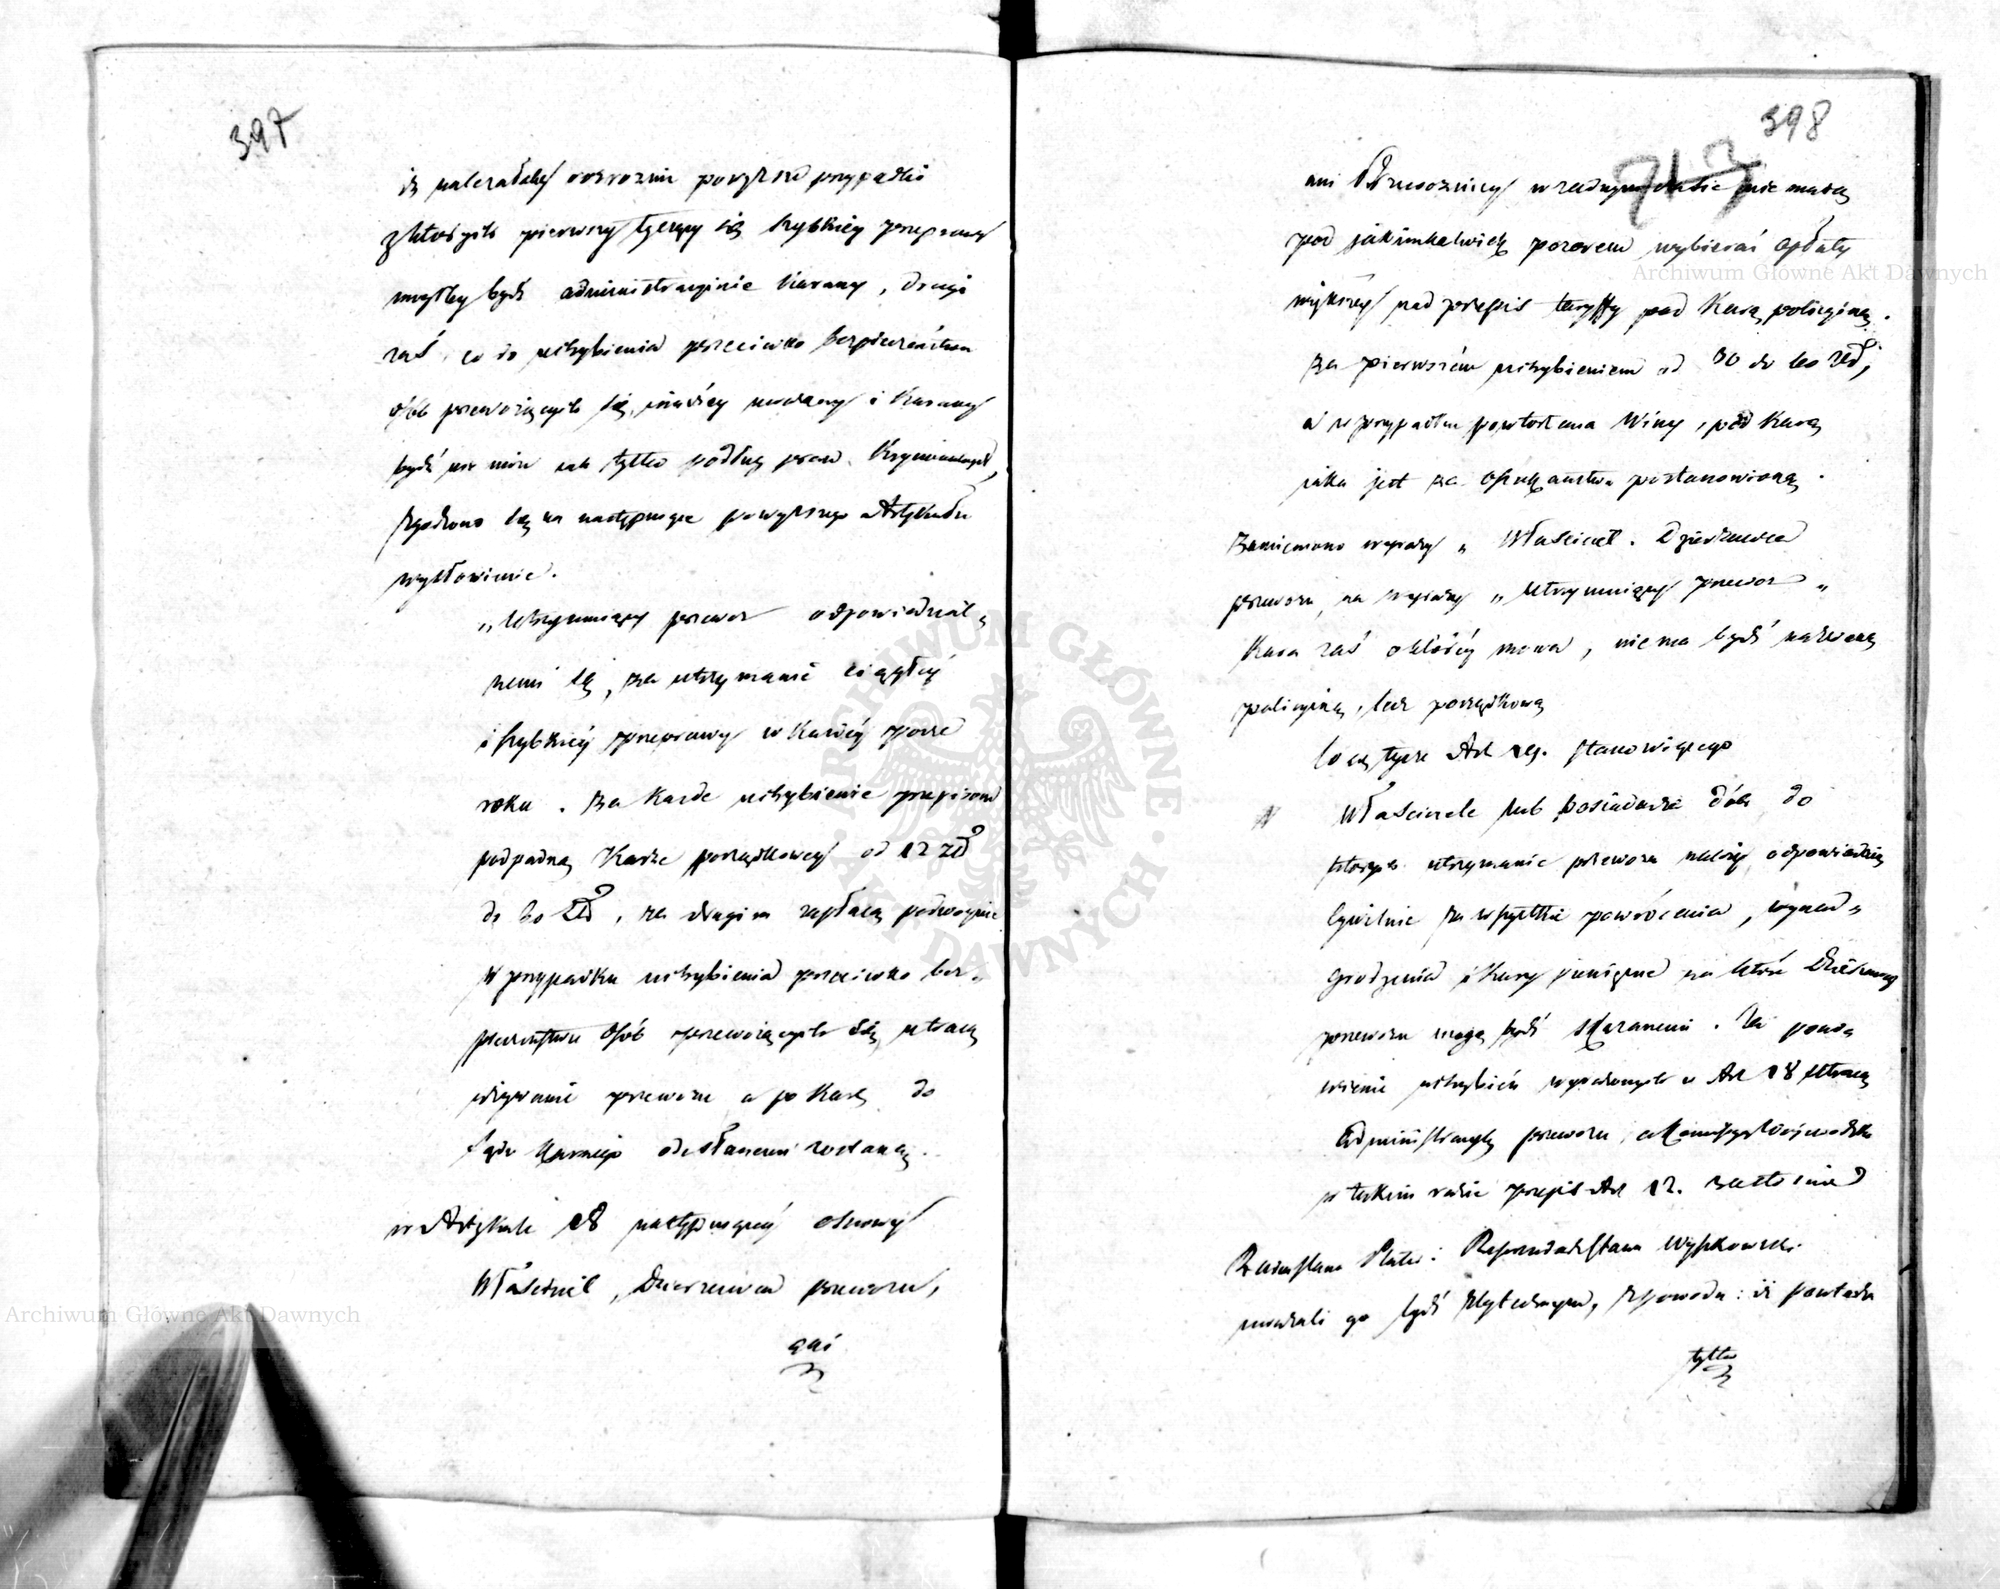 397
iż należałoby rozroznić powyższe przypadki
z których pierwszy tyczący się szybkiey przeprawy
mógłby bydź administracyinie karany, drugi
zaś co do uchybienia przeciwko bezpieczeństwu
osób przewożących się, inaczey uważany i karany
bydź nie może jak tylko podług praw Kryminalnych,
zgodzono się na następujące powyższego Artykułu
wysłowienie.
„Utrzymuiący przewoz odpowiedzial„
nemi są, za utrzymanie ciągłey
i szybkiey przeprawy w każdey porze
roku. Za każde uchybienie przepisom
podpadną karze porządkowey od 12 Zł
do 60 Zł, za drugim zapłacą podwoynie
W przypadku uchybienia przeciwko bez„
pieczeństwu Osób przewożących się, utracą
używanie przewozu a po karę do
Sądu Karnego odesłanemi zostaną.
w Artykule 18 następuiącey osnowy
Właściciel, Dzierżawca przewozu,
ani
398
ani Przewoznicy w żadnym razie nie maią
pod jakimkolwiek pozorem wybierać opłaty
większey nad przepis taryffy pod karą policyiną.
za pierwszém uchybieniem od 30 do 60 Zł,
a w przypadku powtorzenia Winy, pod karą
jaka jest za oszukaństwo postanowioną.
Zamieniono wyrazy „Właściciel. Dzierżawca
przewozu, na wyrazy „Utrzymuiący przewoz„
Kara zaś o któréy mowa, nie ma bydź nazwaną
policyiną, lecz porządkową
Co się tycze Art 19. stanowiącego
Właściciele lub Posiadacze dóbr do
których utrzymanie przewozu należy odpowiedzą
Cywilnie za wszystkie powrócenia, wynad„
grodzenia i kary pieniężne na które Dzierżawcy
przewozu mogą bydź skazanemi. Za pono
wienie uchybień wyrażonych w Art 18 utracą
Administracyą przewozu, a Kommissya Woiewodzka
w takim razie przepis Art 12. zastosuie
Radca Stanu Plater i Referendarz Stanu Wyszkowski
uważali go bydź zbytecznym, z powodu: iż powtarza
tylko